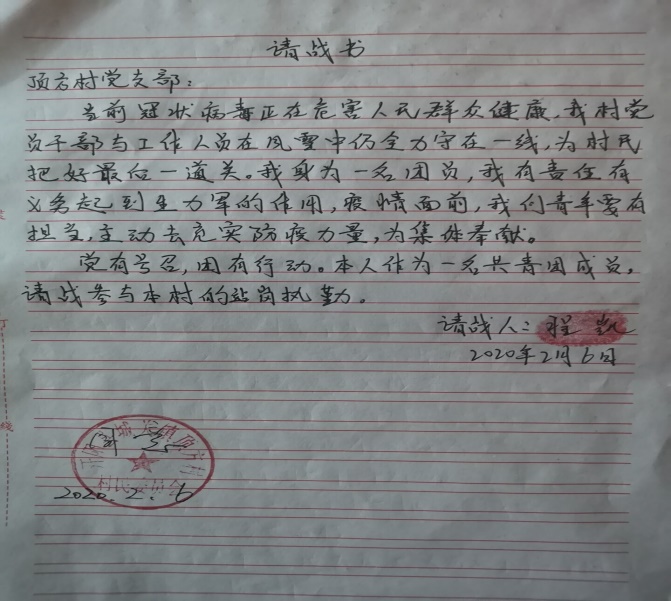 请战书
顶方村党支部：
当前冠状病毒正在危害人民群众健康，我村党
员干部与工作人员在风雪中仍全力守在一线，为村民
把好最后一道关。我身为一名团员，我有责任有
义务起到生力军的作用，疫情面前，我们青年要有
担当，主动去充实防疫力量，为集体奉献。
党有号召，团有行动。本人作为一名共青团成员，
请战参与本村的站岗执勤。
请战人：程凯
2020年2月6日
村民委员会
2020.2.6
线